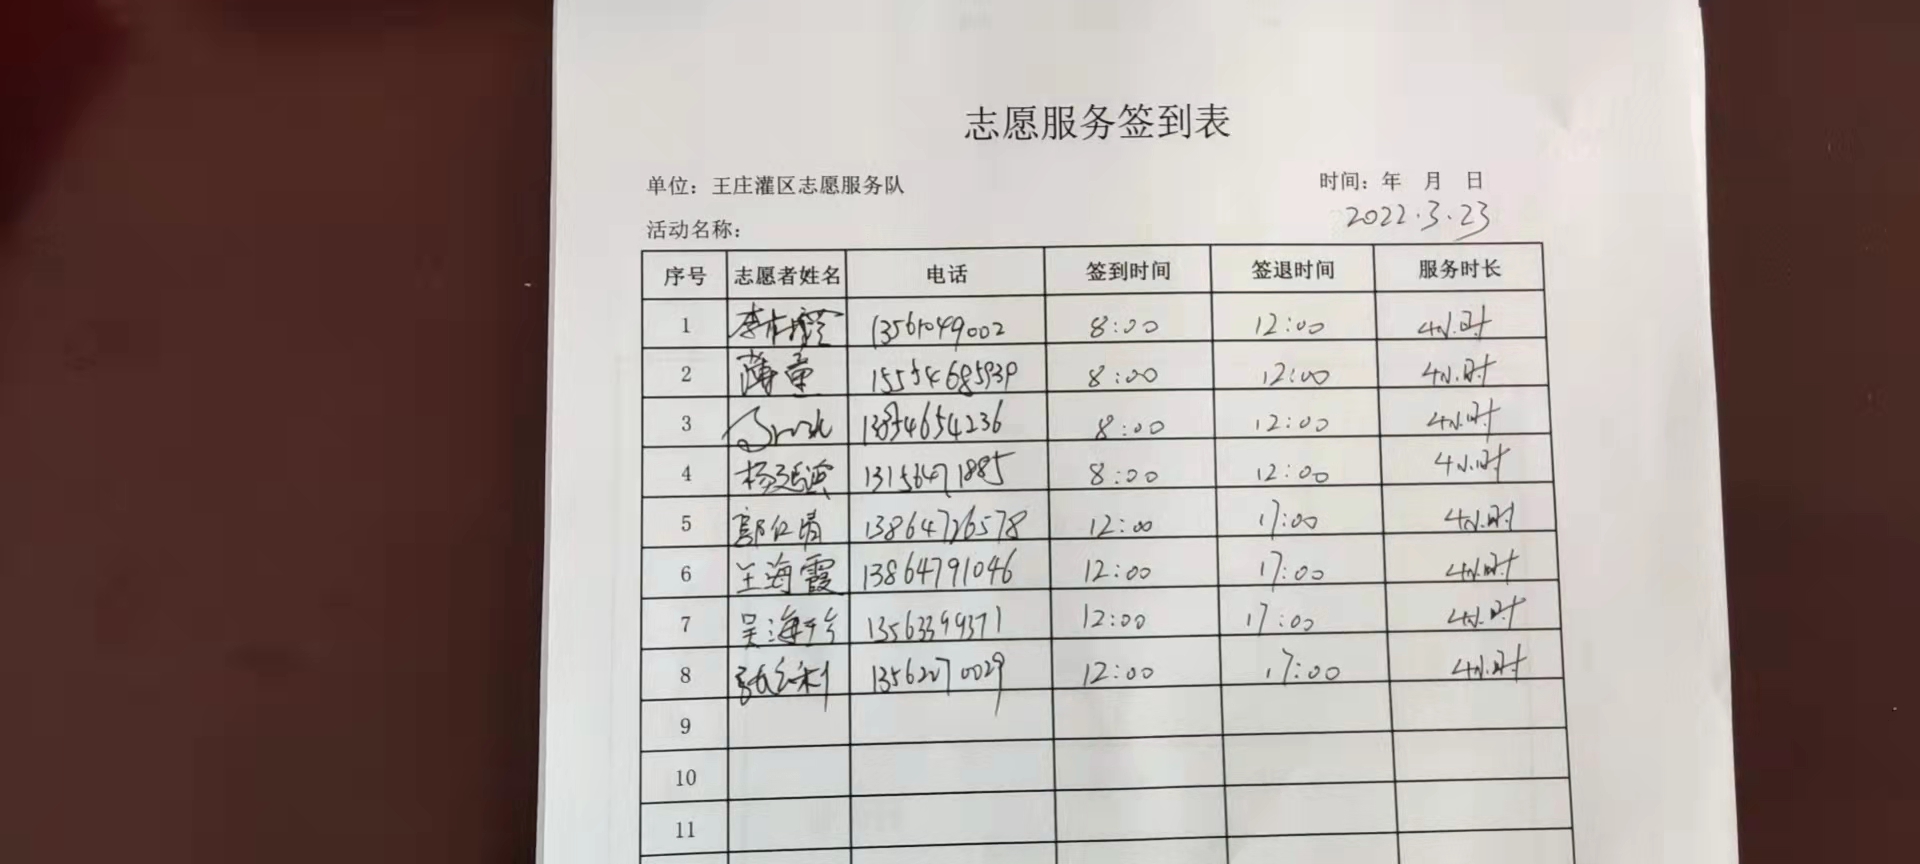 志愿服务签到表
单位：王庄灌区志愿服务队 时间：年 月 日
2022.3.23
活动名称：
序号 志愿者姓名 电话 签到时间 签退时间 服务时长
1 13561049002 8:00 12:00 4小时
2 薄童 8:00 12:00 4小时
3 13854654236 8:00 12:00 4小时
4 13156471885 8:00 12:00 4小时
5 13864726578 12:00 17:00 4小时
6 王海霞 13864791046 12:00 17:00 4小时
7 吴海珍 13563399371 12:00 17:00 4小时
8 13562070029 12:00 17:00 4小时
9
10
11